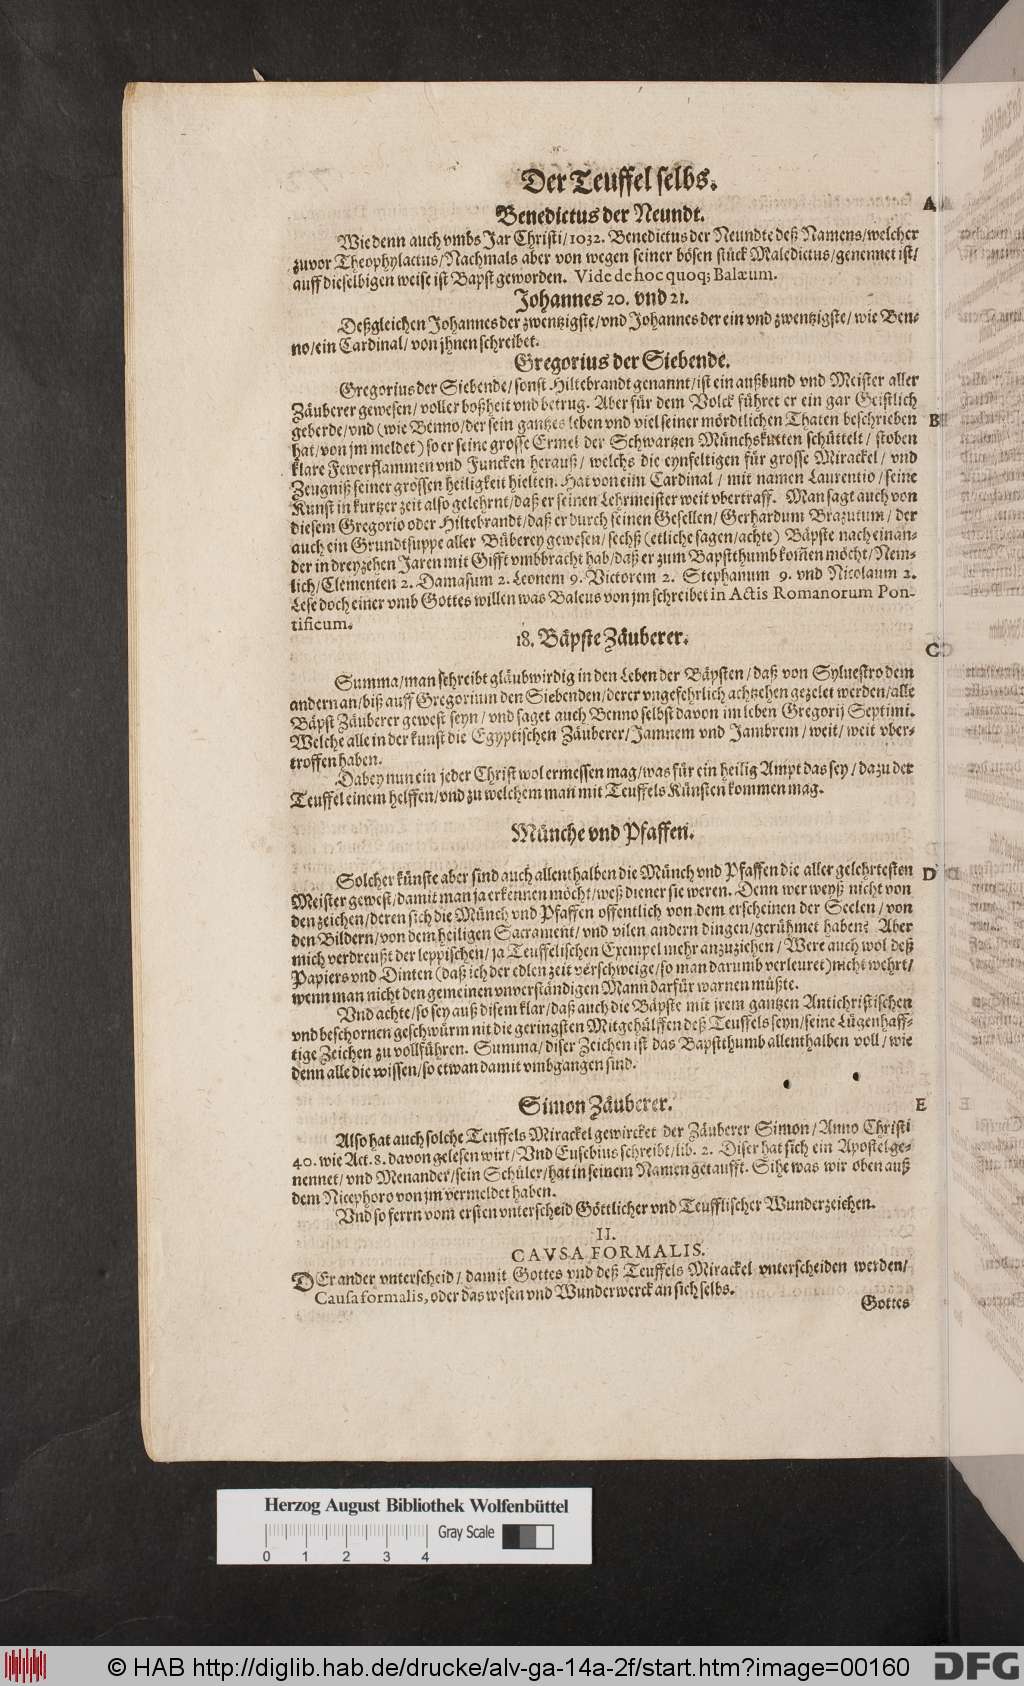 Der Teuffel selbs.
Benedictus der Neundt.
A
Wie denn auch vmbs Jar Christi/1032. Benedictus der Neundte deß Namens/welcher
zuvor Theophylactus/Nachmals aber von wegen seiner bösen stück Maledictus/genennet ist/
auff dieselbigen weise ist Bapst geworden. Vide de hoc quoq; Balæum.
Johannes 20. vnd 21.
Deßgleichen Johannes der zwentzigste/vnd Johannes der ein vnd zwentzigste/ wie Ben-
no/ein Cardinal/ von jhnen schreibet.
Gregorius der Siebende.
Gregorius der Siebende/sonst Hiltebrandt genannt/ist ein außbund vnd Meister aller
Zäuberer gewesen/ voller boßheit vnd betrug. Aber für dem Volck führet er ein gar Geistlich
B
geberde/vnd (wie Benno/der sein gantzes leben vnd viel seiner mördtlichen Thaten beschrieben
hat/von jm meldet) so er seine grosse Ermel der Schwartzen Münchskutten schüttelt/ stoben
klare Fewerflammen vnd Funcken herauß/ welchs die eynfeltigen für grosse Mirackel/ vnd
Zeugniß seiner grossen heiligkeit hielten. Hat von eim Cardinal/ mit namen Laurentio/seine
Kunst in kurtzer zeit also gelehrnt/daß er seinen Lehrmeister weit vbertraff. Man sagt auch von
diesem Gregorio oder Hiltebrandt/daß er durch seinen Gesellen/ Gerhardum Brazutum/ der
auch ein Grundtsuppe aller Büberey gewesen/ sechß (etliche sagen/achte) Bäpste nach einan-
der in dreyzehen Jaren mit Gifft vmbbracht hab/daß er zum Bapstthumb kom̃en möcht/Nem-
lich/Clementen 2. Damasum 2. Leonem 9. Victorem 2. Stephanum 9. vnd Nicolaum 2.
Lese doch einer vmb Gottes willen was Baleus von jm schreibet in Actis Romanorum Pon-
tificum.
18. Bäpste Zäuberer.
C
Summa/man schreibt gläubwirdig in den Leben der Bäpsten/ daß von Syluestro dem
andern an/biß auff Gregorium den Siebenden/derer vngefehrlich achtzehen gezelet werden/alle
Bäpst Zäuberer gewest seyn/ vnd saget auch Benno selbst davon im leben Gregorij Septimi.
Welche alle in der kunst die Egyptischen Zäuberer/Jamnem vnd Jambrem/ weit/ weit vber-
troffen haben.
Dabey nun ein jeder Christ wol ermessen mag/was für ein heilig Ampt das sey/ dazu der
Teuffel einem helffen/vnd zu welchem man mit Teuffels Künsten kommen mag.
Münche vnd Pfaffen.
Solcher künste aber sind auch allenthalben die Münch vnd Pfaffen die aller gelehrtesten
D
Meister gewest/damit man ja erkennen möcht/weß diener sie weren. Denn wer weyß nicht von
den zeichen/deren sich die Münch vnd Pfaffen offentlich von dem erscheinen der Seelen/ von
den Bildern/von dem heiligen Sacrament/ vnd vilen andern dingen/gerühmet haben? Aber
mich verdreußt der leppischen/ ja Teuffelischen Exempel mehr anzuziehen/ Were auch wol deß
Papiers vnd Dinten (daß ich der edlen zeit verschweige/so man darumb verleuret) nicht wehrt/
wenn man nicht den gemeinen vnverständigen Mann darfür warnen müßte.
Vnd achte/so sey auß disem klar/daß auch die Bäpste mit jrem gantzen Antichristischen
vnd beschornen geschwürm nit die geringsten Mitgehülffen deß Teuffels seyn/seine Lügenhaff-
tige Zeichen zu vollführen. Summa/ diser Zeichen ist das Bapstthumb allenthalben voll/ wie
denn alle die wissen/so etwan damit vmbgangen sind.
Simon Zäuberer.
E
Also hat auch solche Teuffels Mirackel gewircket der Zäuberer Simon/ Anno Christi
40. wie Act. 8. davon gelesen wirt/ Vnd Eusebius schreibt/lib. 2. Diser hat sich ein Apostel ge-
nennet/vnd Menander/sein Schüler/hat in seinem Namen getaufft. Sihe was wir oben auß
dem Nicephoro von jm vermeldet haben.
Vnd so ferrn vom ersten vnterscheid Göttlicher vnd Teufflischer Wunderzeichen.
II.
CAVSA FORMALIS.
DEr ander vnterscheid/ damit Gottes vnd deß Teuffels Mirackel vnterscheiden werden/
Causa formalis, oder das wesen vnd Wunderwerck an sich selbs.
Gottes
Herzog August Bibliothek Wolfenbüttel
Gray Scale
0 1 2 3 4
© HAB http://diglib.hab.de/drucke/alv-ga-14a-2f/start.htm?image=00160
DFG